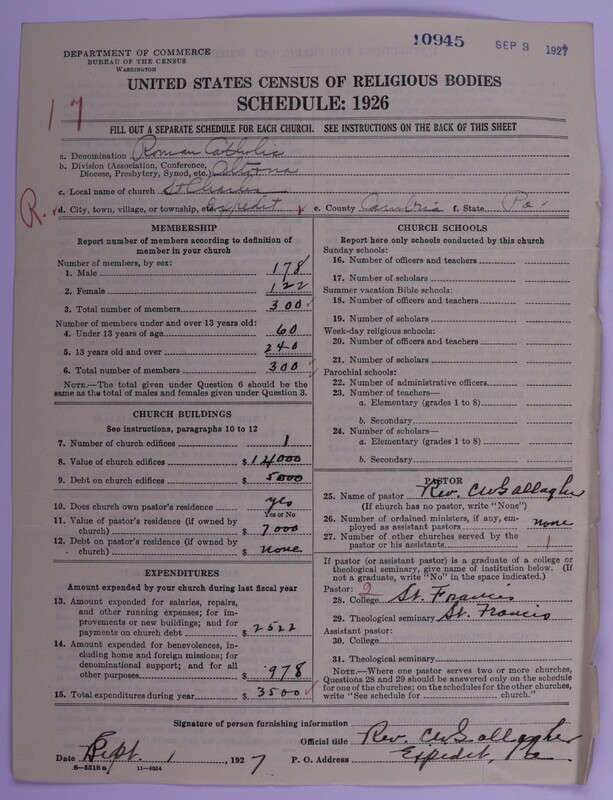 10945 SEP 3 1927
DEPARTMENT OF COMMERCE
BUREAU OF THE CENSUS
WASHINGTON
UNITED STATES CENSUS OF RELIGIOUS BODIES
SCHEDULE: 1926
17
FILL OUT A SEPARATE SCHEDULE FOR EACH CHURCH. SEE INSTRUCTIONS ON THE BACK OF THIS SHEET
a. Denomination Roman Catholic
b. Division (Association, Conference,
Diocese, Presbytery, Synod, etc.) Altoona
c. Local name of church St Charles
R. d. City, town, village, or township, etc. Expedit e. County Cambria f. State Pa.
MEMBERSHIP
Report number of members according to definition of
member in your church
Number of members, by sex:
1. Male 178
2. Female 122
3. Total number of members 300
Number of members under and over 13 years old:
4. Under 13 years of age 60
5. 13 years old and over 240
6. Total number of members 300
NOTE.—The total given under Question 6 should be the
same as the total of males and females given under Question 3.
CHURCH BUILDINGS
See instructions, paragraphs 10 to 12
7. Number of church edifices 1
8. Value of church edifices $ 14000
9. Debt on church edifices $ 5000
10. Does church own pastor's residence yes
Yes or No
11. Value of pastor's residence (if owned by
church) $ 7000
12. Debt on pastor's residence (if owned by
church) $ None
EXPENDITURES
Amount expended by your church during last fiscal year
13. Amount expended for salaries, repairs,
and other running expenses; for im-
provements or new buildings; and for
payments on church debt $ 2522
14. Amount expended for benevolences, in-
cluding home and foreign missions; for
denominational support; and for all
other purposes $ 978
15. Total expenditures during year $ 3500
CHURCH SCHOOLS
Report here only schools conducted by this church
Sunday schools:
16. Number of officers and teachers
17. Number of scholars
Summer vacation Bible schools:
18. Number of officers and teachers
19. Number of scholars
Week-day religious schools:
20. Number of officers and teachers
21. Number of scholars
Parochial schools:
22. Number of administrative officers
23. Number of teachers—
a. Elementary (grades 1 to 8)
b. Secondary
24. Number of scholars—
a. Elementary (grades 1 to 8)
b. Secondary
PASTOR
25. Name of pastor Rev. CW Gallagher
(If church has no pastor, write "None")
26. Number of ordained ministers, if any, em-
ployed as assistant pastors none
27. Number of other churches served by the
pastor or his assistants 1
If pastor (or assistant pastor) is a graduate of a college or
theological seminary, give name of institution below. (If
not a graduate, write "No" in the space indicated.)
Pastor: 2
28. College St. Francis
29. Theological seminary St. Francis
Assistant pastor:
30. College
31. Theological seminary
NOTE.—Where one pastor serves two or more churches,
Questions 28 and 29 should be answered only on the schedule
for one of the churches; on the schedules for the other churches,
write "See schedule for church."
Signature of person furnishing information
Official title Rev. CW Gallagher
Date Sept. 1, 1927 P. O. Address Expedit, Pa
8—5318 a 11—9264